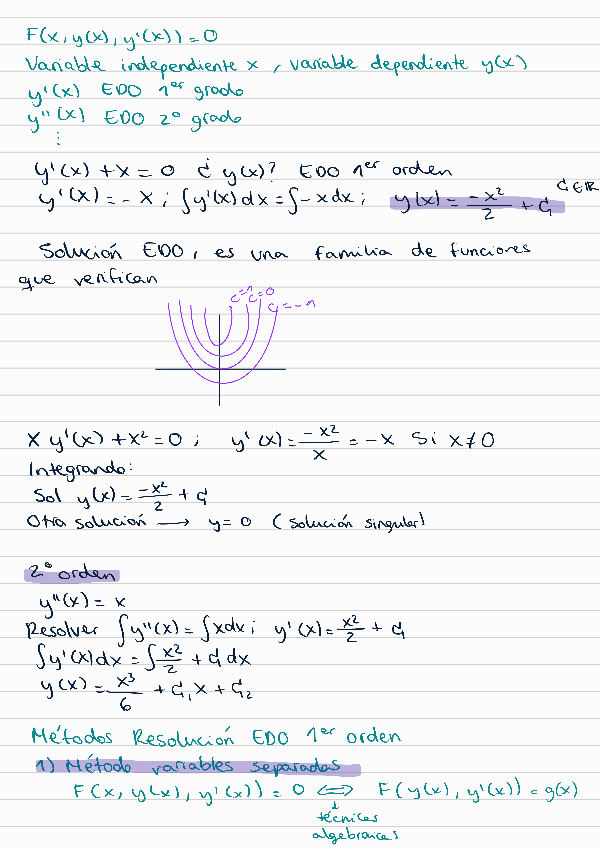 F(x, y(x), y'(x)) = 0
Variable independiente x, variable dependiente y(x)
y'(x) EDO 1er grado
y''(x) EDO 2º grado
⋮
y'(x) + x = 0 ¿ y(x)? EDO 1er orden
y'(x) = -x ; ∫y'(x)dx = ∫-xdx ; y(x) = -x²/2 + C₁ C ∈ ℝ
Solución EDO, es una familia de funciones
que verifican
C=1 C=0
C=-1
x y'(x) + x² = 0 ; y'(x) = -x²/x = -x Si x≠0
Integrando:
Sol y(x) = -x²/2 + C
Otra solución → y = 0 (solución singular)
2º orden
y''(x) = x
Resolver ∫y''(x) = ∫xdx ; y'(x) = x²/2 + C₁
∫y'(x)dx = ∫x²/2 + C₁ dx
y(x) = x³/6 + C₁x + C₂
Métodos Resolución EDO 1er orden
1) Método variables separadas
F(x, y(x), y'(x)) = 0 ⟺ F(y(x), y'(x)) = g(x)
↓
técnicas
algebraicas